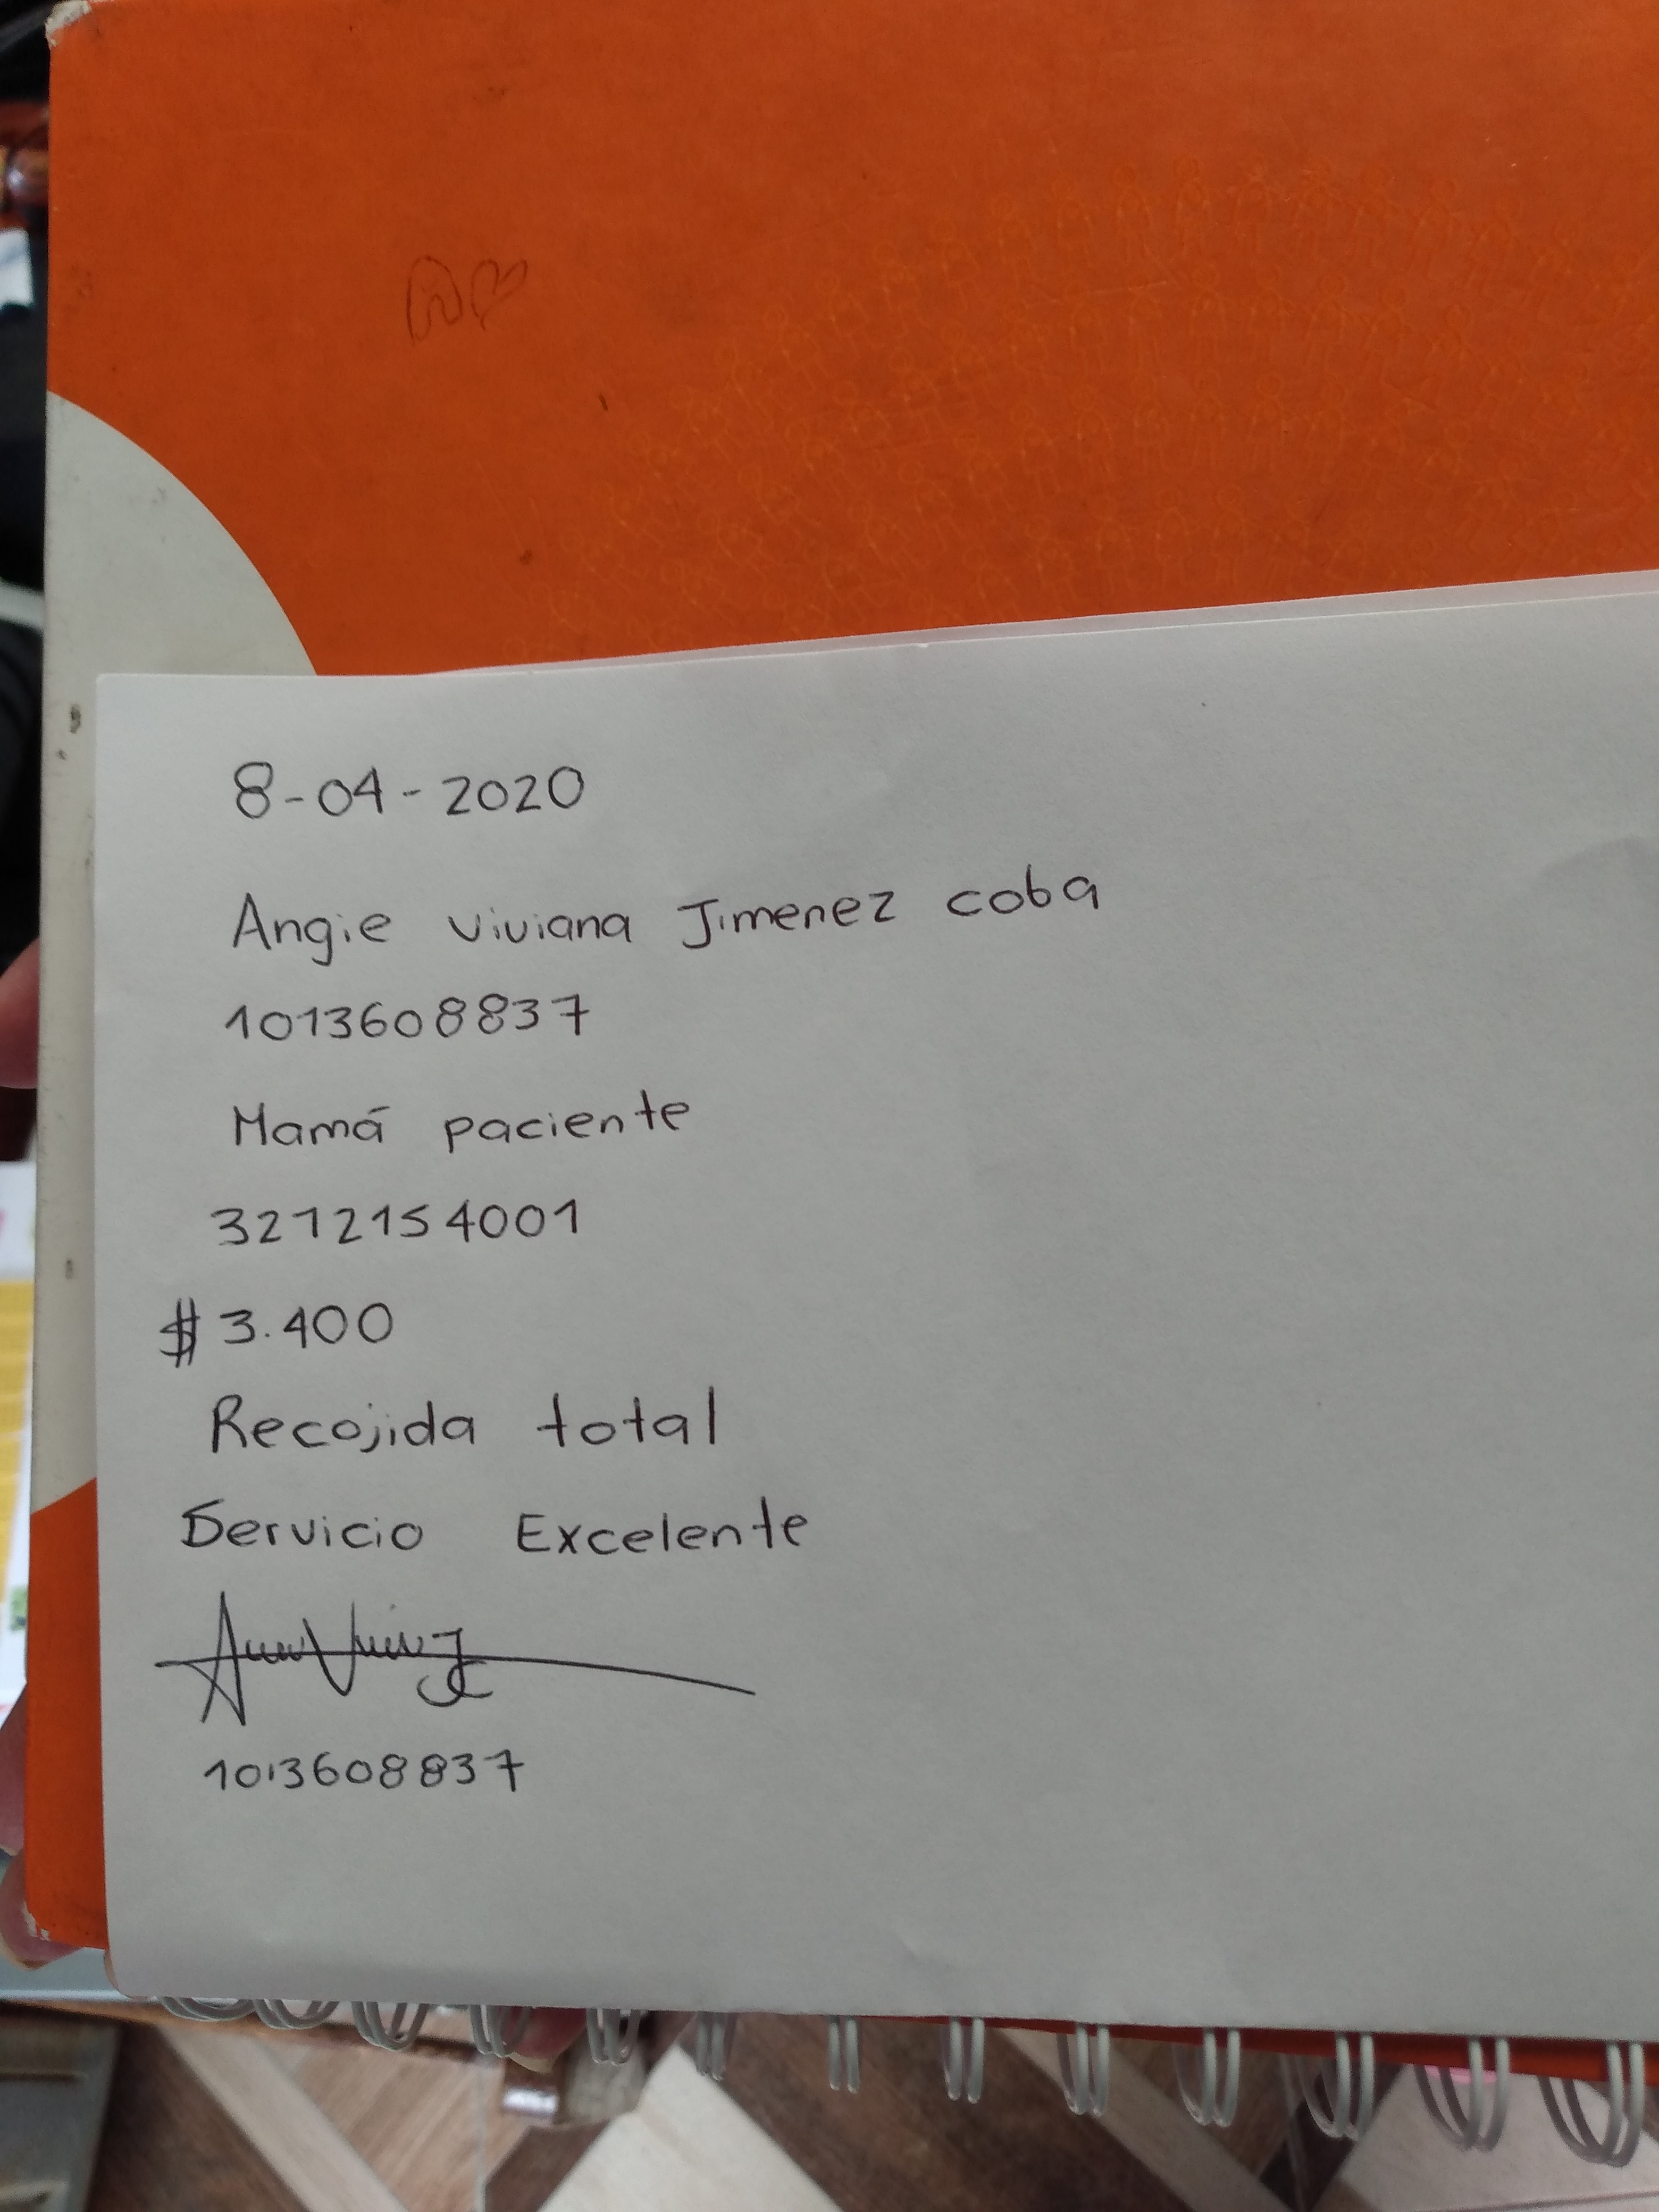 8-04-2020
Angie Viviana Jimenez coba
1013608837
Mamá paciente
3212154001
$3.400
Recojida total
Servicio Excelente
1013608837